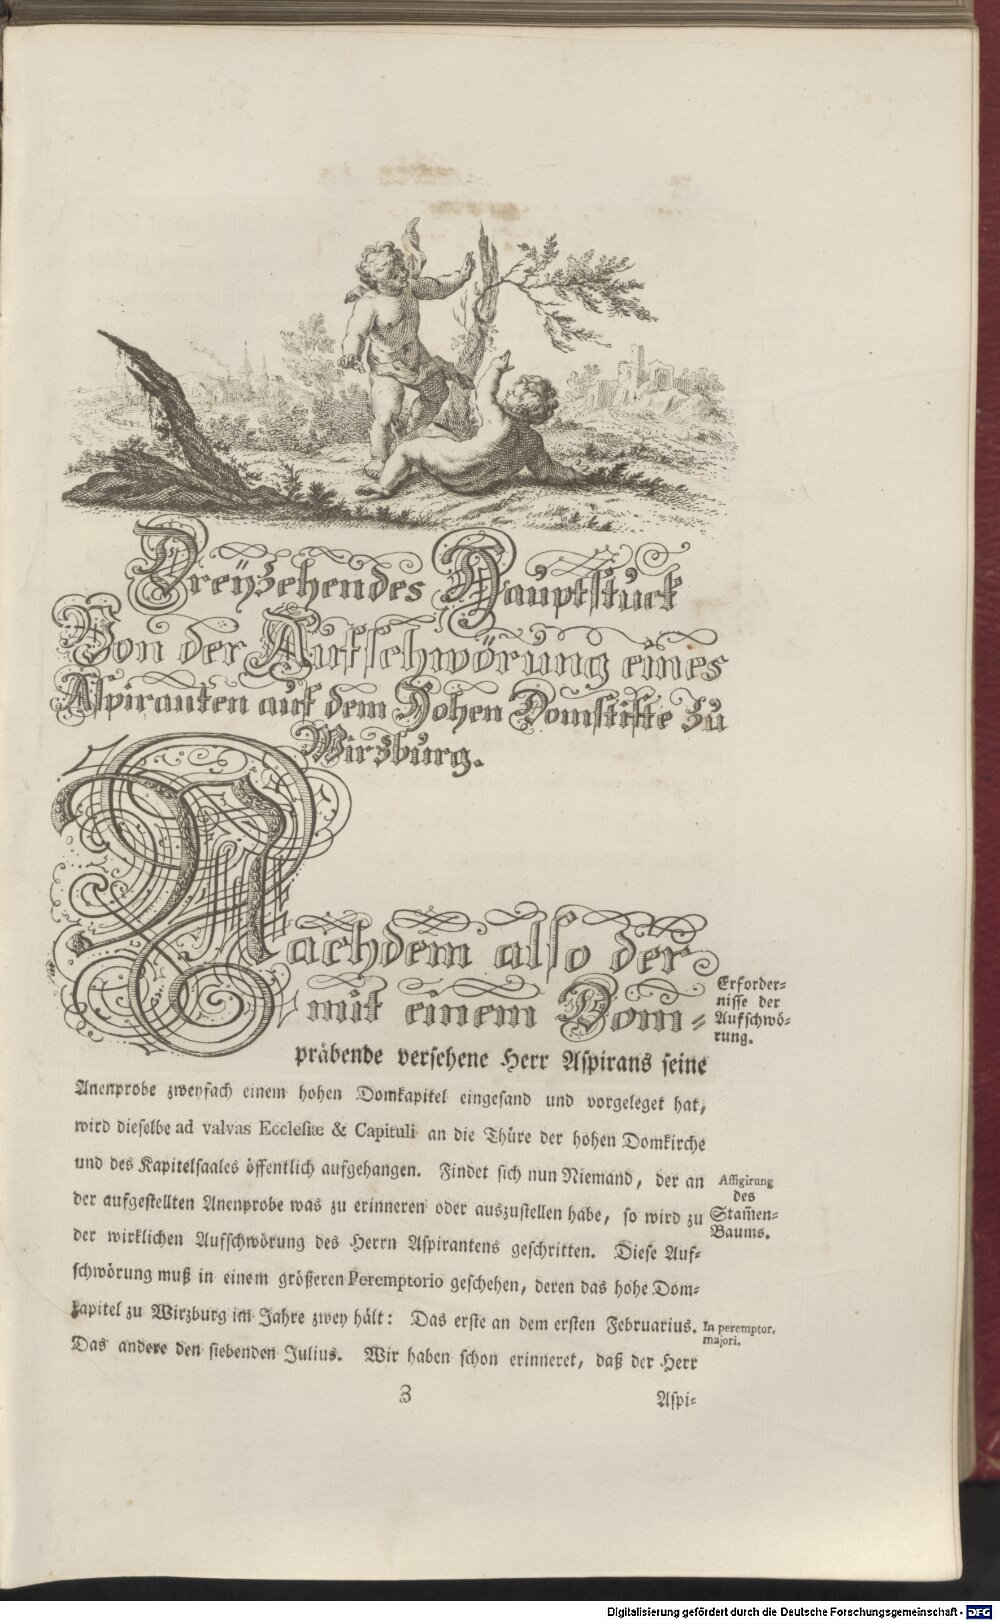 Dreÿzehendes Hauptstück
Von der Aufschwörung eines
Aspiranten auf dem Hohen Domstifte zu
Wirzburg.
Nachdem also der
mit einem Dom-
präbende versehene Herr Aspirans seine
Anenprobe zweyfach einem hohen Domkapitel eingesand und vorgeleget hat,
wird dieselbe ad valvas Ecclesiæ & Capituli an die Thüre der hohen Domkirche
und des Kapitelsaales öffentlich aufgehangen. Findet sich nun Niemand, der an
der aufgestellten Anenprobe was zu erinneren oder auszustellen habe, so wird zu
der wirklichen Aufschwörung des Herrn Aspirantens geschritten. Diese Auf-
schwörung muß in einem größeren Peremptorio geschehen, deren das hohe Dom-
kapitel zu Wirzburg im Jahre zwey hält: Das erste an dem ersten Februarius.
Das andere den siebenden Julius. Wir haben schon erinneret, daß der Herr
Erforder-
nisse der
Aufschwö-
rung.
Affigirung
des
Stam̃en-
Baums.
In peremptor.
majori.
3
Aspi-
Digitalisierung gefördert durch die Deutsche Forschungsgemeinschaft - DFG